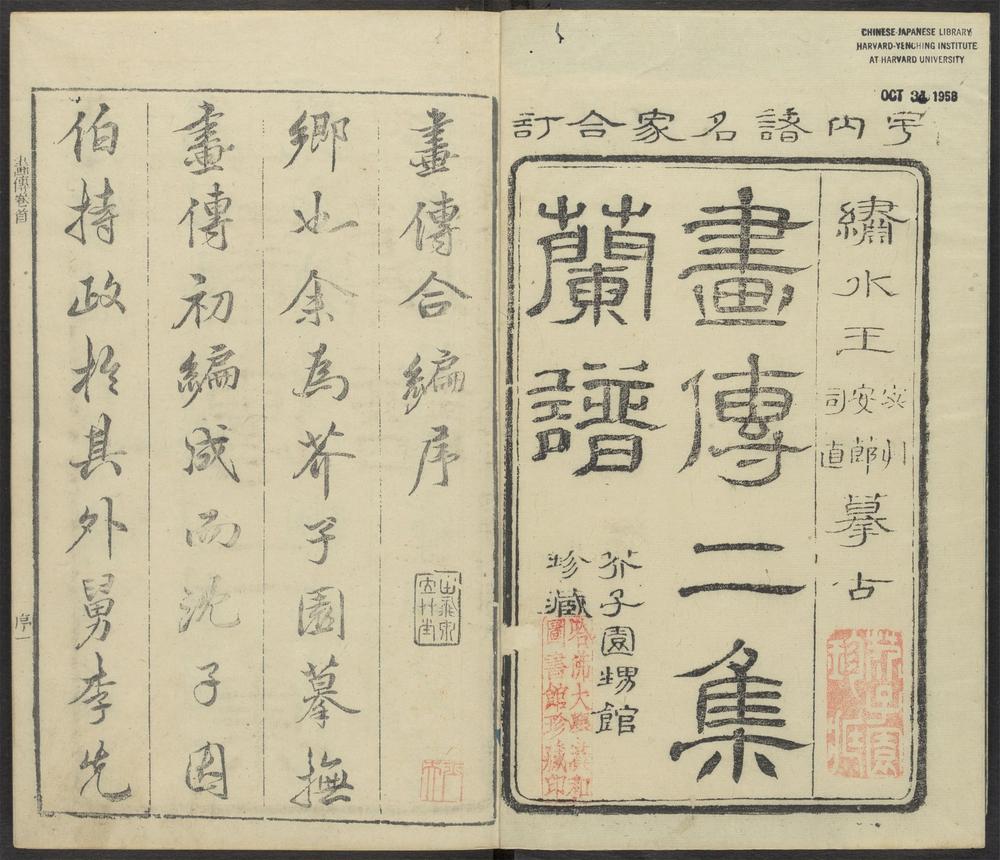 CHINESE-JAPANESE LIBRARY
HARVARD-YENCHING INSTITUTE
AT HARVARD UNIVERSITY
OCT 31 1958
宇內諸名家合訂
繡水王
宓川
安節
司直
摹古
畫傳二集
蘭譜
芥子園甥館
珍藏
哈佛大學漢和
圖書館珍藏印
畫傳合編序
鄉也余為芥子園摹撫
畫傳初編成而沈子因
伯持政於其外舅李先
畫傳卷首
序一